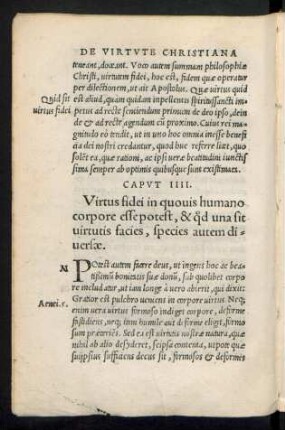 DE VIRTVTE CHRISTIANA
teneant, doceant. Voco autem summam philosophiæ
Christi, virtutem fidei, hoc est, fidem quæ operatur
per dilectionem, ut ait Apostolus. Quæ virtus quid
Quid sit
est aliud, quàm quidam inpellentis spiritussancti im
virtus fidei
petus ad recte sentiendum primum de deo ipso, dein
de & ad recte agendum cū proximo. Cuius rei ma
gnitudo eò tendit, ut in uno hoc omnia inesse benefi
cia dei nostri credantur, quod huc referre licet, quo
solēt ea, quæ rationi, ac ipsi veræ beatitudini iunctis
sima semper ab optimis quibusque sunt existimata.
CAPVT IIII.
Virtus fidei in quouis humano
corpore esse potest, & qd una sit
uirtutis facies, species autem di-
uersæ.
M
POtest autem fieri deus, ut ingens hoc ac bea-
tissimū hominis sue donū, sub quolibet corpo
re includatur, ut iam longe à vero aberrit, qui dixit:
Aenei.5.
Gratior est pulchro ueniens in corpore uirtus. Neq;
enim vera virtus formoso indiget corpore, deforme
fastidiens, neq; item humile aut deforme eligit, formo
sum præteriens. Sed ea est virtutis nostræ natura, quæ
nihil ab alio desyderet, seipsa contenta, utpote quæ
suijpsius sufficiens decus sit, formosos & deformes